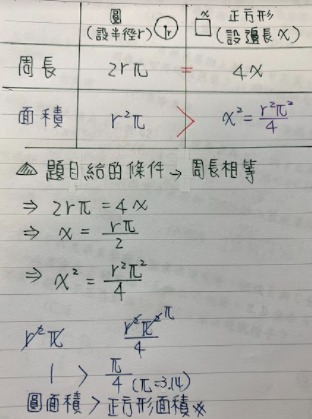 圓 正方形
(設半徑r) r x (設邊長x)
周長 2rπ = 4x
面積 r²π > x² = r²π²/4
△ 題目給的條件 → 周長相等
⇒ 2rπ = 4x
⇒ x = rπ/2
⇒ x² = r²π²/4
r²π r²π²/4 π
1 > π/4 (π=3.14)
圓面積 > 正方形面積※